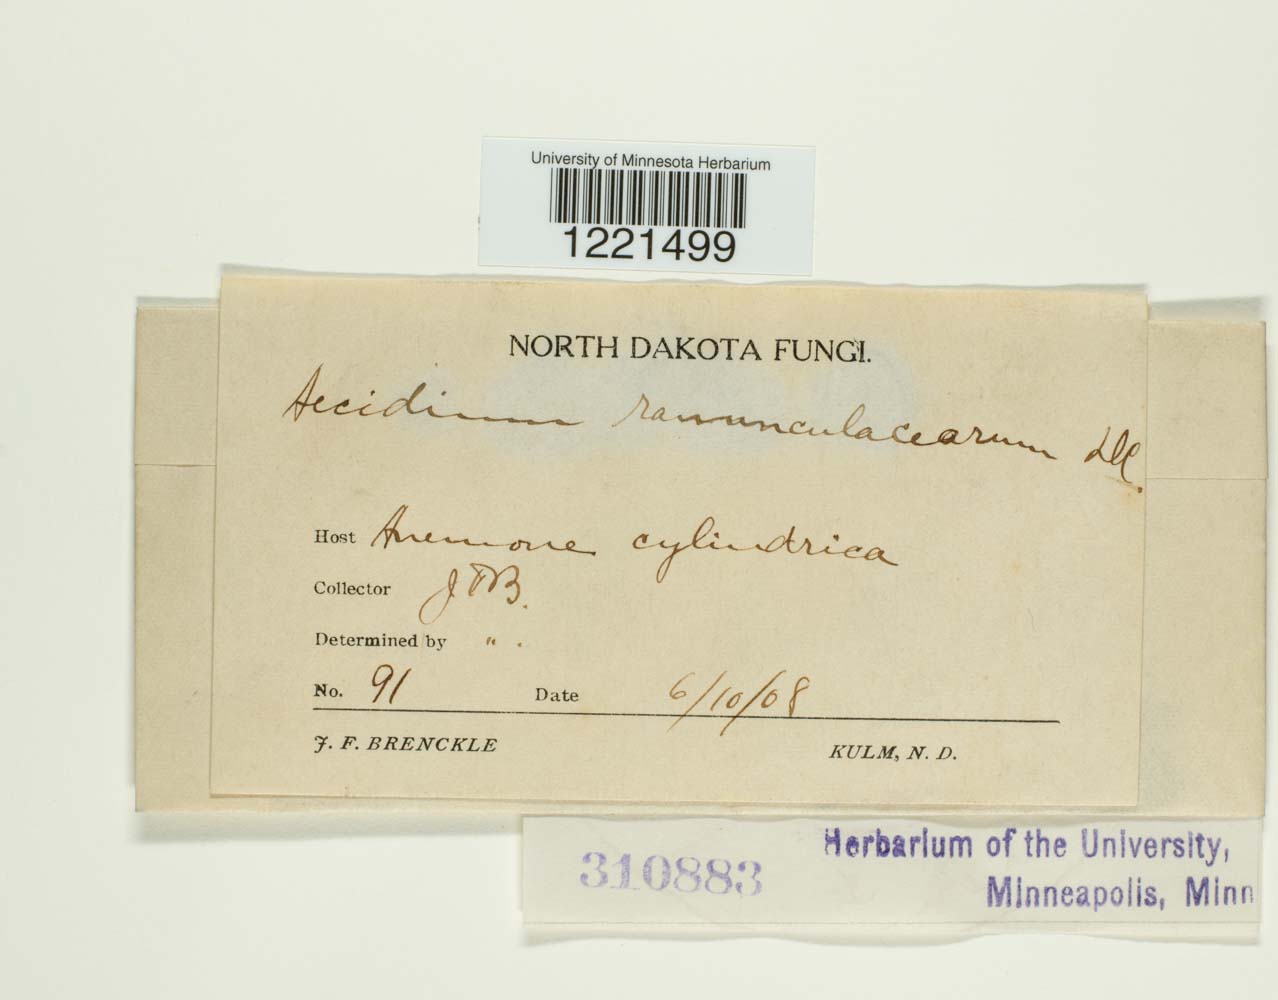 University of Minnesota Herbarium
1221499
NORTH DAKOTA FUNGI.
Aecidium ranunculacearum DC.
Host Anemone cylindrica
Collector JFB.
Determined by " .
No. 91 Date 6/10/08
J. F. BRENCKLE KULM, N. D.
310883 Herbarium of the University,
Minneapolis, Minn